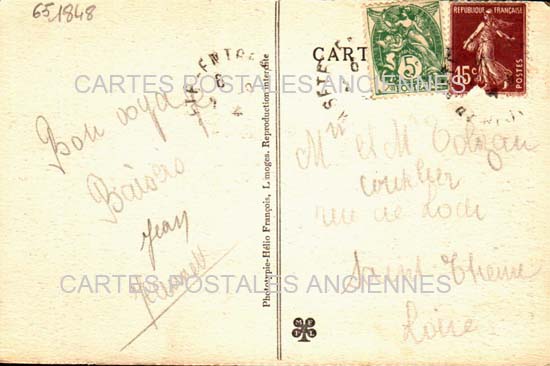 65/1848
CART
5c
REPUBLIQUE FRANÇAISE
15c
POSTES
CARTES POSTALES ANCIENNES
Bon voyage
Baisers
Jean
Phototypie-Hélio François, Limoges. Reproduction interdite
Mr et Mme
rue de Lodi
Saint Etienne
Loire
CARTES POSTALES ANCIENNES